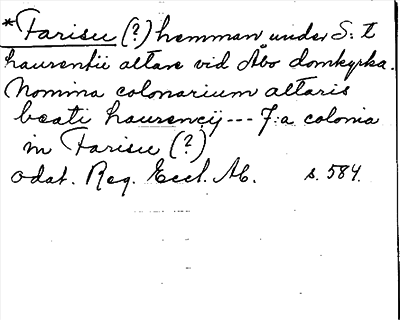 *Farisu (?) hemman under S:t
Laurentii altare vid Åbo domkyrka.
Nomina colonarium altaris
beati Laurencij --- 7:a colonia
in Farisu (?)
odat. Reg. Eccl. Ab. s. 584.